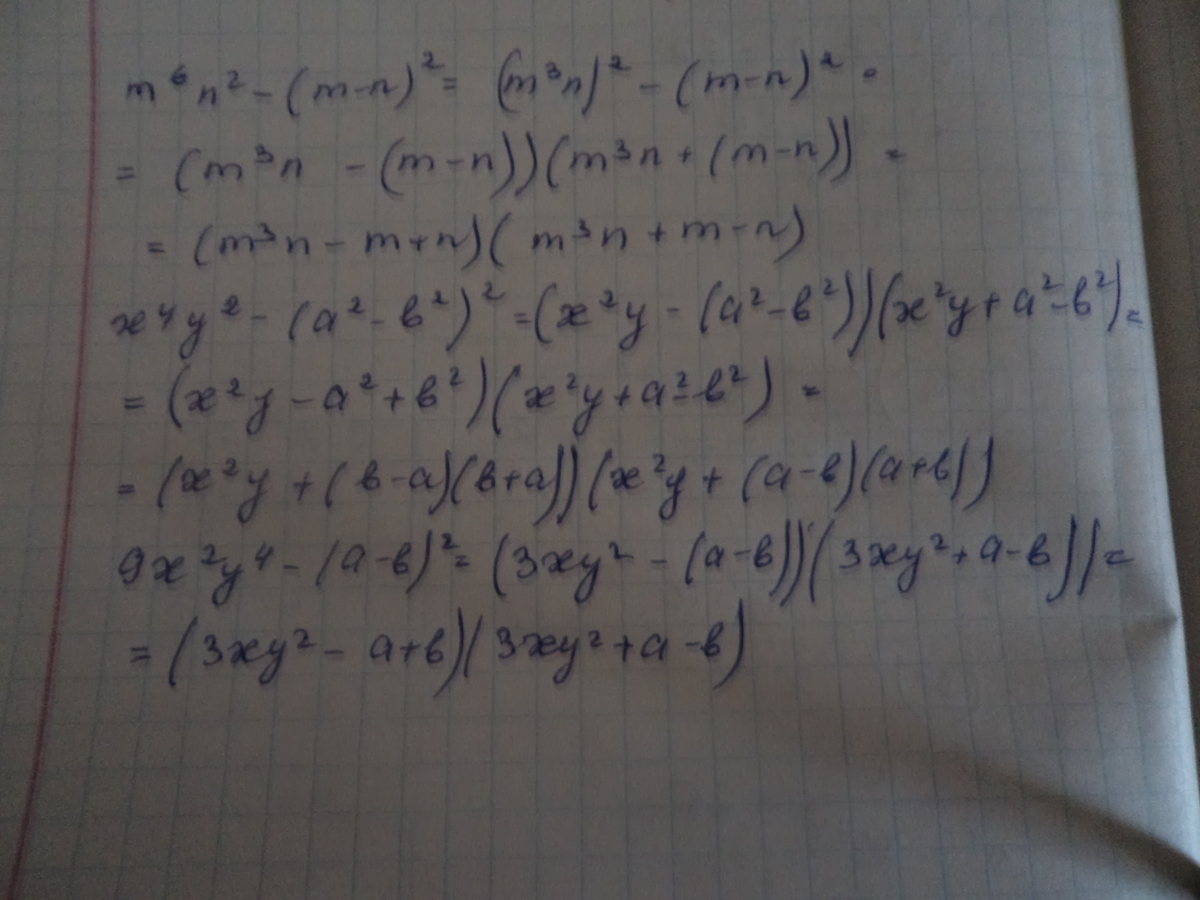 m⁶n² - (m-n)² = (m³n)² - (m-n)² =
= (m³n - (m-n))(m³n + (m-n)) =
= (m³n - m+n)(m³n + m-n)
x⁴y² - (a² - b²)² = (x²y - (a²-b²))(x²y + a²-b²) =
= (x²y - a² + b²)(x²y + a² - b²) =
= (x²y + (b-a)(b+a))(x²y + (a-b)(a+b))
9x²y⁴ - (a-b)² = (3xy² - (a-b))(3xy² + a-b)) =
= (3xy² - a+b)(3xy² + a-b)